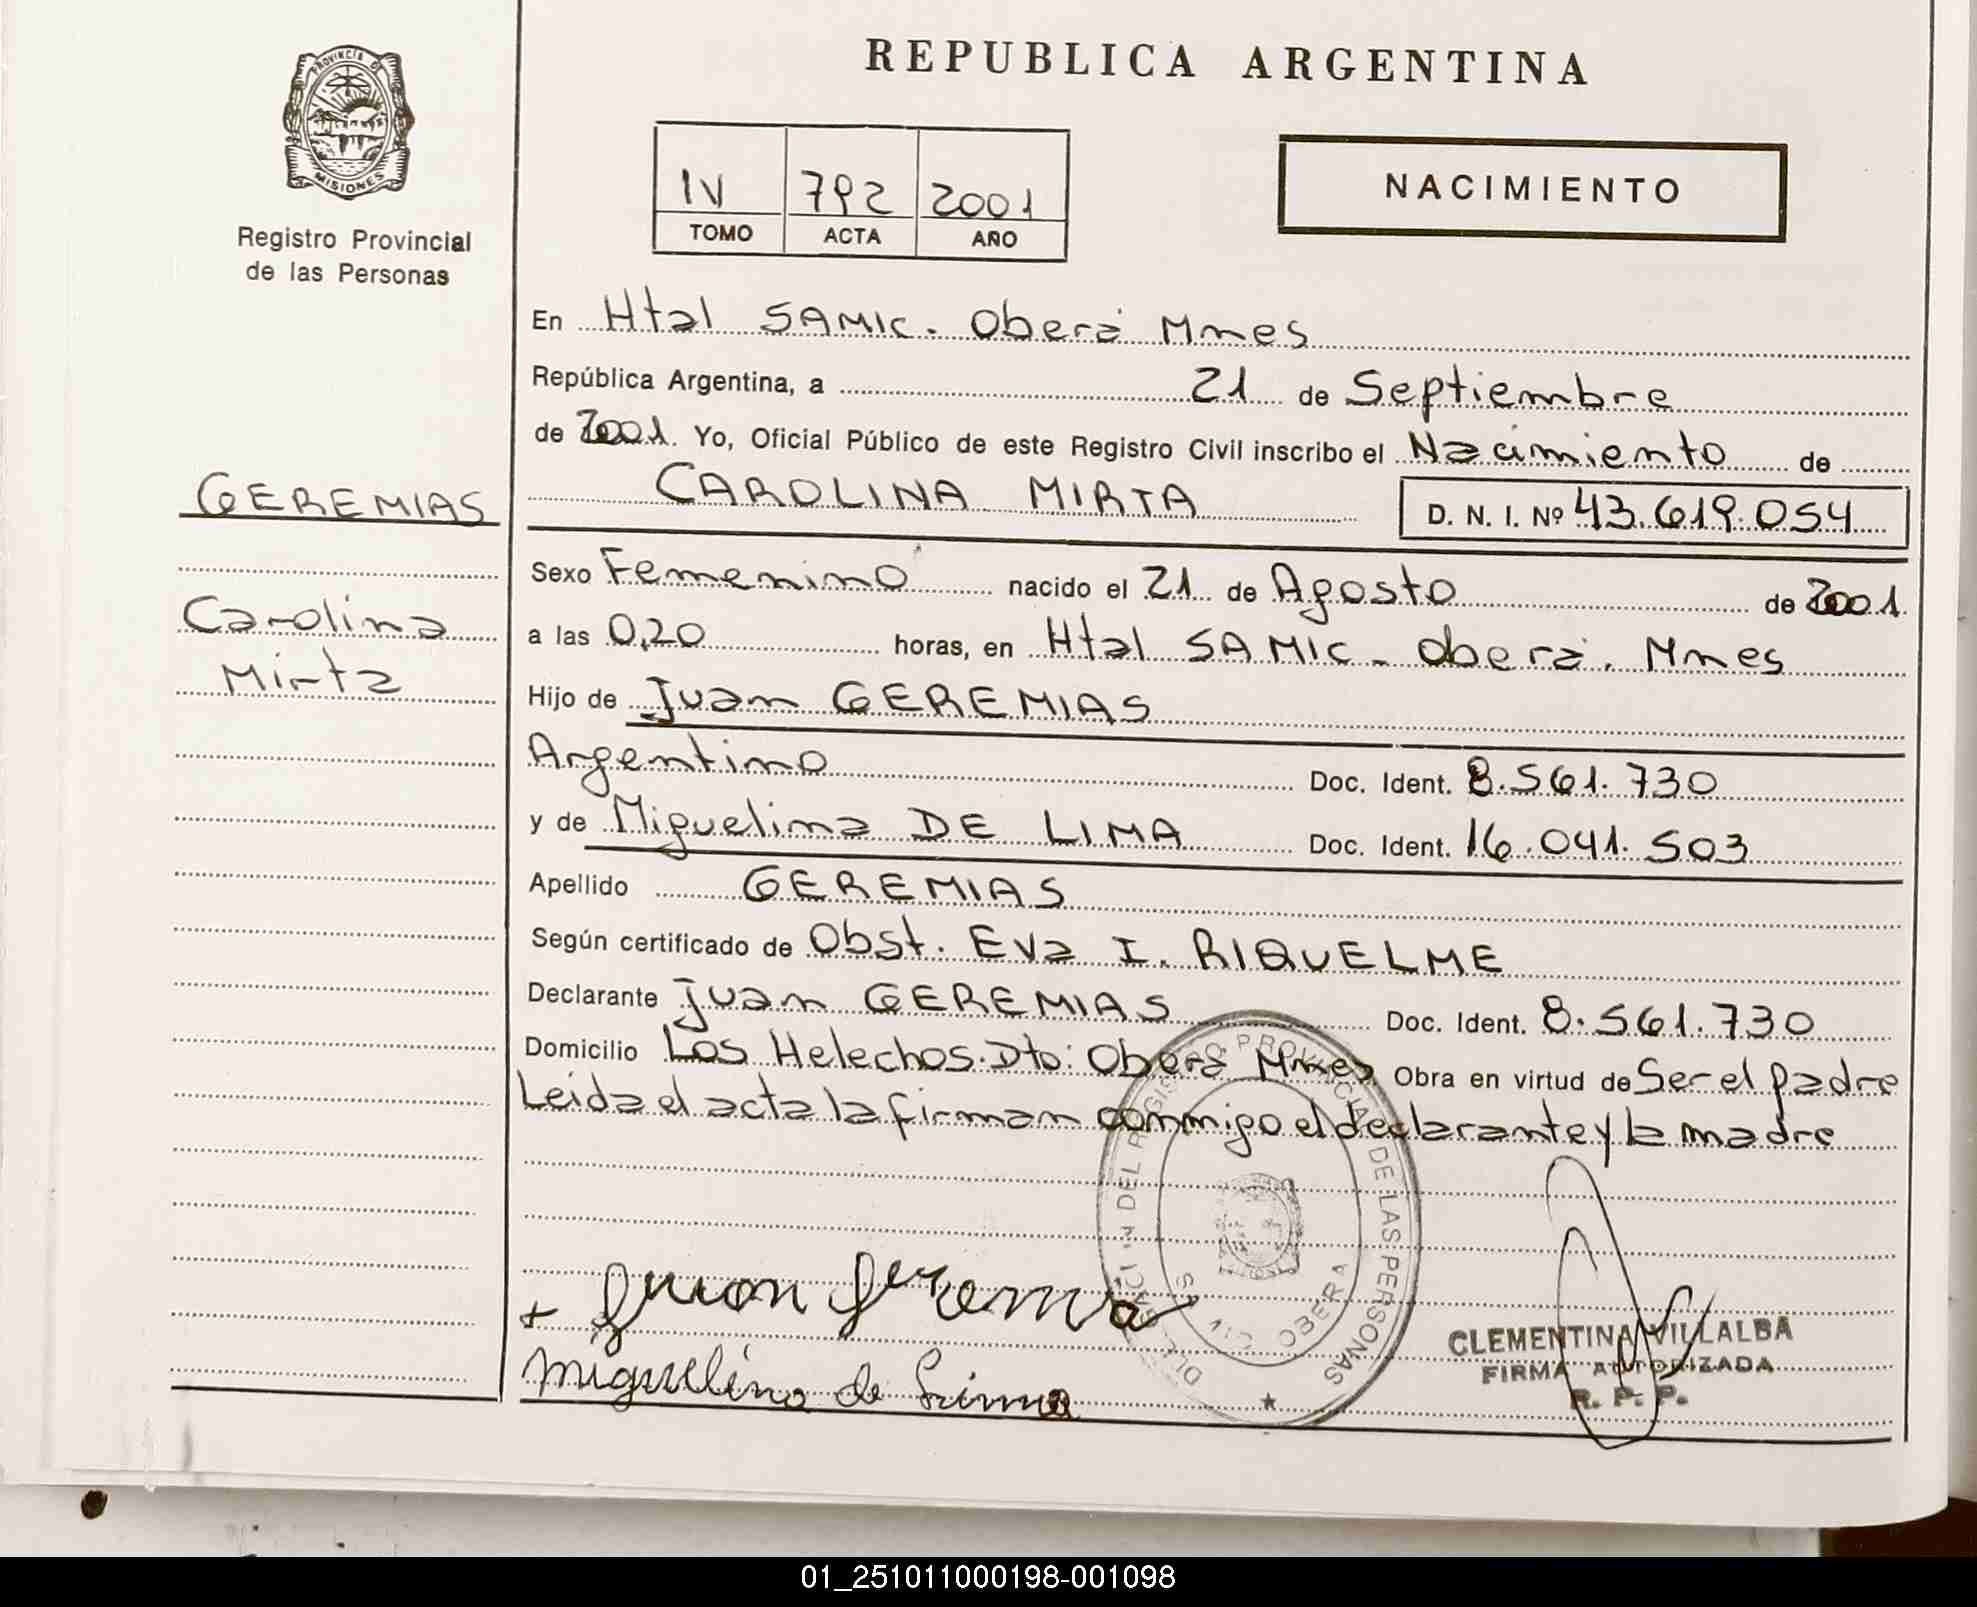 REPUBLICA ARGENTINA
PROVINCIA DE
MISIONES
Registro Provincial
de las Personas
IV 792 2001
TOMO ACTA AÑO
NACIMIENTO
En Htal SAMIC. Oberá Mnes
República Argentina, a 21 de Septiembre
de 2001. Yo, Oficial Público de este Registro Civil inscribo el Nacimiento de
CAROLINA MIRTA D. N. I. Nº 43.619.054
GEREMIAS
Carolina
Mirta
Sexo Femenino nacido el 21 de Agosto de 2001
a las 0,20 horas, en Htal SAMIC - Oberá. Mnes
Hijo de Juan GEREMIAS
Argentino Doc. Ident. 8.561.730
y de Miguelina DE LIMA Doc. Ident. 16.041.503
Apellido GEREMIAS
Según certificado de Obst. Eva I. RIQUELME
Declarante Juan GEREMIAS Doc. Ident. 8.561.730
Domicilio Los Helechos. Dto: Oberá Mnes Obra en virtud de Ser el padre
Leida el acta la firman conmigo el declarante y la madre
DEL REGISTRO PROVINCIAL DE LAS PERSONAS
OBERA
+ Juan Geremia
Miguelina de Lima
CLEMENTINA VILLALBA
FIRMA AUTORIZADA
R. P. P.
01_251011000198-001098